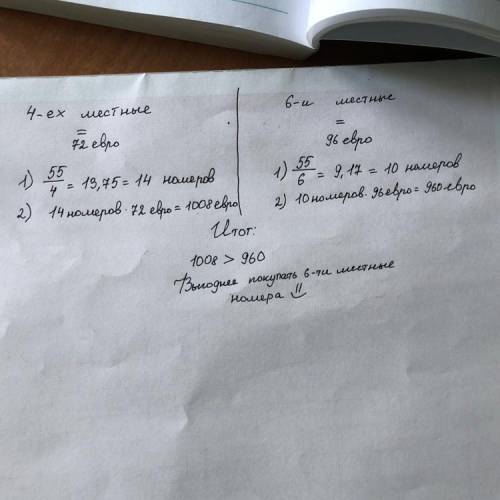 4-ех местные
=
72 евро
1) 55/4 = 13,75 = 14 номеров
2) 14 номеров · 72 евро = 1008 евро
6-и местные
=
96 евро
1) 55/6 = 9,17 = 10 номеров
2) 10 номеров · 96 евро = 960 евро
Итог:
1008 > 960
Выгоднее покупать 6-ти местные
номера